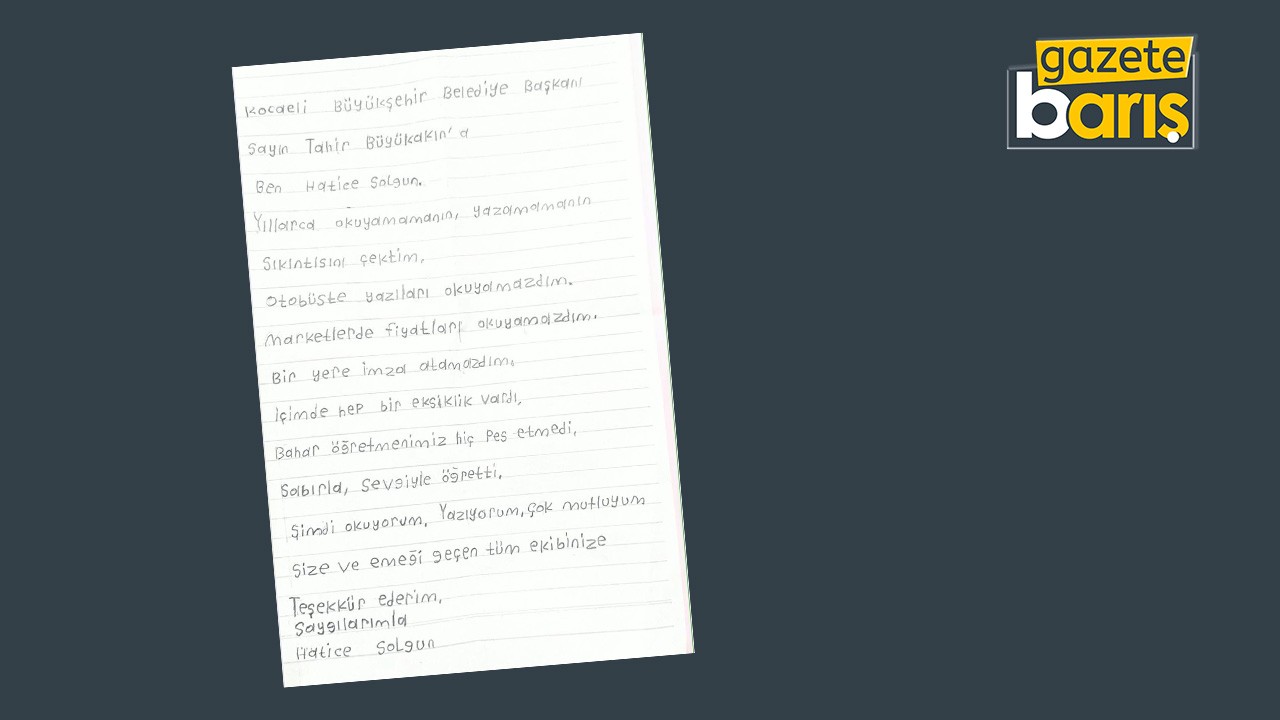 Kocaeli Büyükşehir Belediye Başkanı
Sayın Tahir Büyükakın'a
Ben Hatice Solgun.
Yıllarca okuyamamanın, yazamamanın
Sıkıntısını çektim,
Otobüste yazıları okuyamazdım.
Marketlerde fiyatları okuyamazdım.
Bir yere imza atamazdım.
İçimde hep bir eksiklik vardı,
Bahar öğretmenimiz hiç pes etmedi,
Sabırla, sevgiyle öğretti,
Şimdi okuyorum, Yazıyorum, çok mutluyum
Size ve emeği geçen tüm ekibinize
Teşekkür ederim,
Saygılarımla
Hatice Solgun
gazete
barış